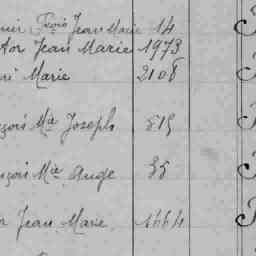 Fçois Jean Marie 14
tor Jean Marie 1973
Marie 2108
nçois Mie Joseph 815
nçois Mie Ange 35
Jean Marie 1664